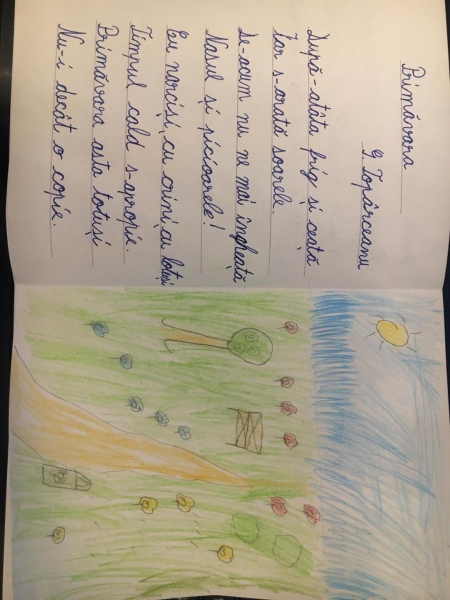 Primăvara
G. Topârceanu
După-atâta frig și ceață
Iar s-arată soarele.
De-acum nu ne mai îngheață
Nasul și picioarele!
Cu narciși, cu crini, cu lotuși
Timpul cald s-apropie.
Primăvara asta totuși
Nu-i decât o copie.